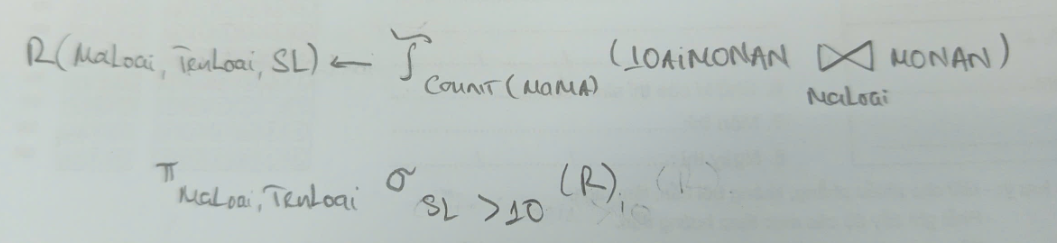 R(MaLoai, TenLoai, SL) ← ℑ COUNT(MaMA) (LOAIMONAN ⋈ MaLoai MONAN)
π MaLoai, TenLoai σ SL >10 (R)